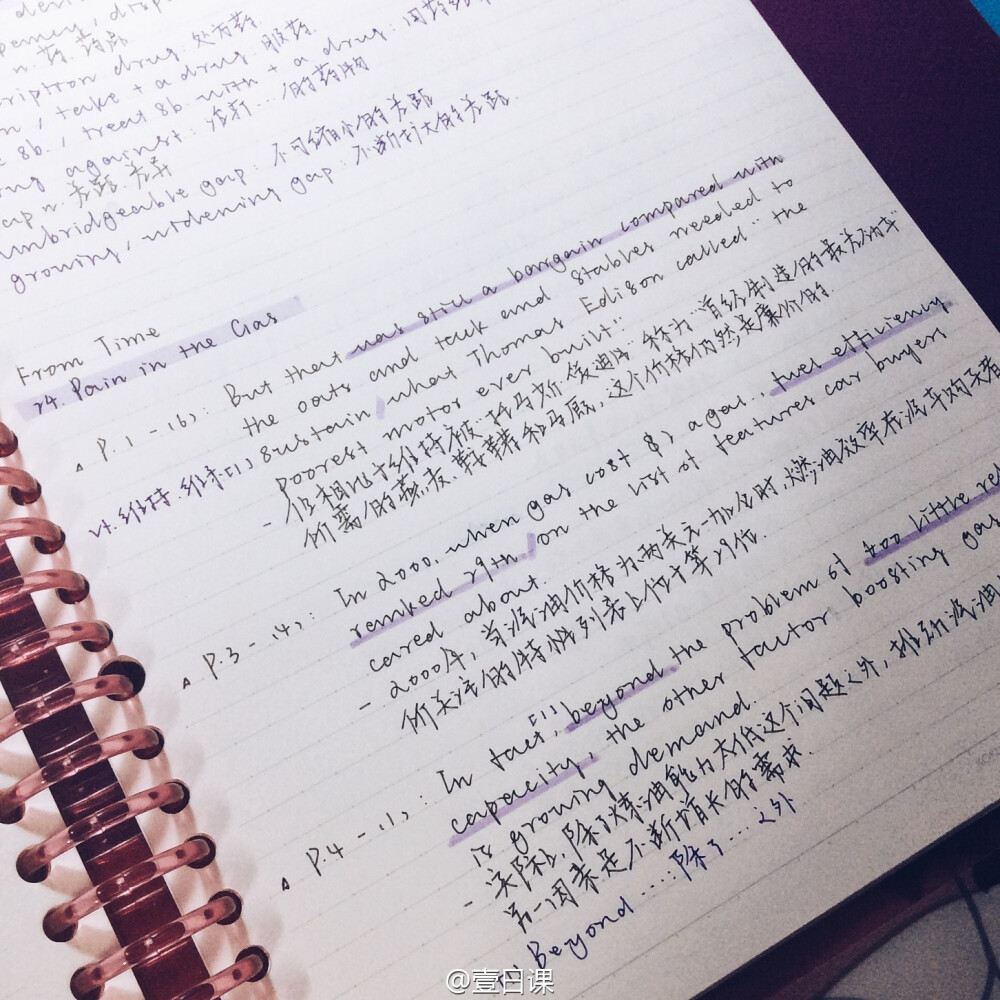 n. 药, 药品
prescription drug: 处方药
, take + a drug: 服药
sb., treat sb. with + a drug: 用药
drug against: 治疗…的药物
gap n. 差距, 差异
unbridgeable gap: 不可缩小的差距
growing, widening gap: 不断扩大的差距
From Time
24. Pain in the Gas
P.1-(6): But that was still a bargain compared with
the oats and tack and stables needed to
vt. 维持, 维系 [1] sustain what Thomas Edison called "the
poorest motor ever built"
- 但相比于维持被托马斯·爱迪生称为"曾经制造的最为
所需的燕麦、鞍辔和马厩, 这个价格仍然是廉价的.
P.3-(4): In 2000, when gas cost $2 a gal., fuel efficiency
ranked 29th on the list of features car buyers
cared about.
- 2000年, 当汽油价格为两美元一加仑时, 燃油效率在汽车购买者
所关注的特性列表上位于第29位.
P.4-(1): In fact, [1] beyond the problem of too little
capacity, the other factor boosting gas
is growing demand.
- 实际上, 除了炼油能力太低这个问题之外, 推动汽油
另一因素是不断增长的需求.
Beyond ……: 除了……之外
@壹日课